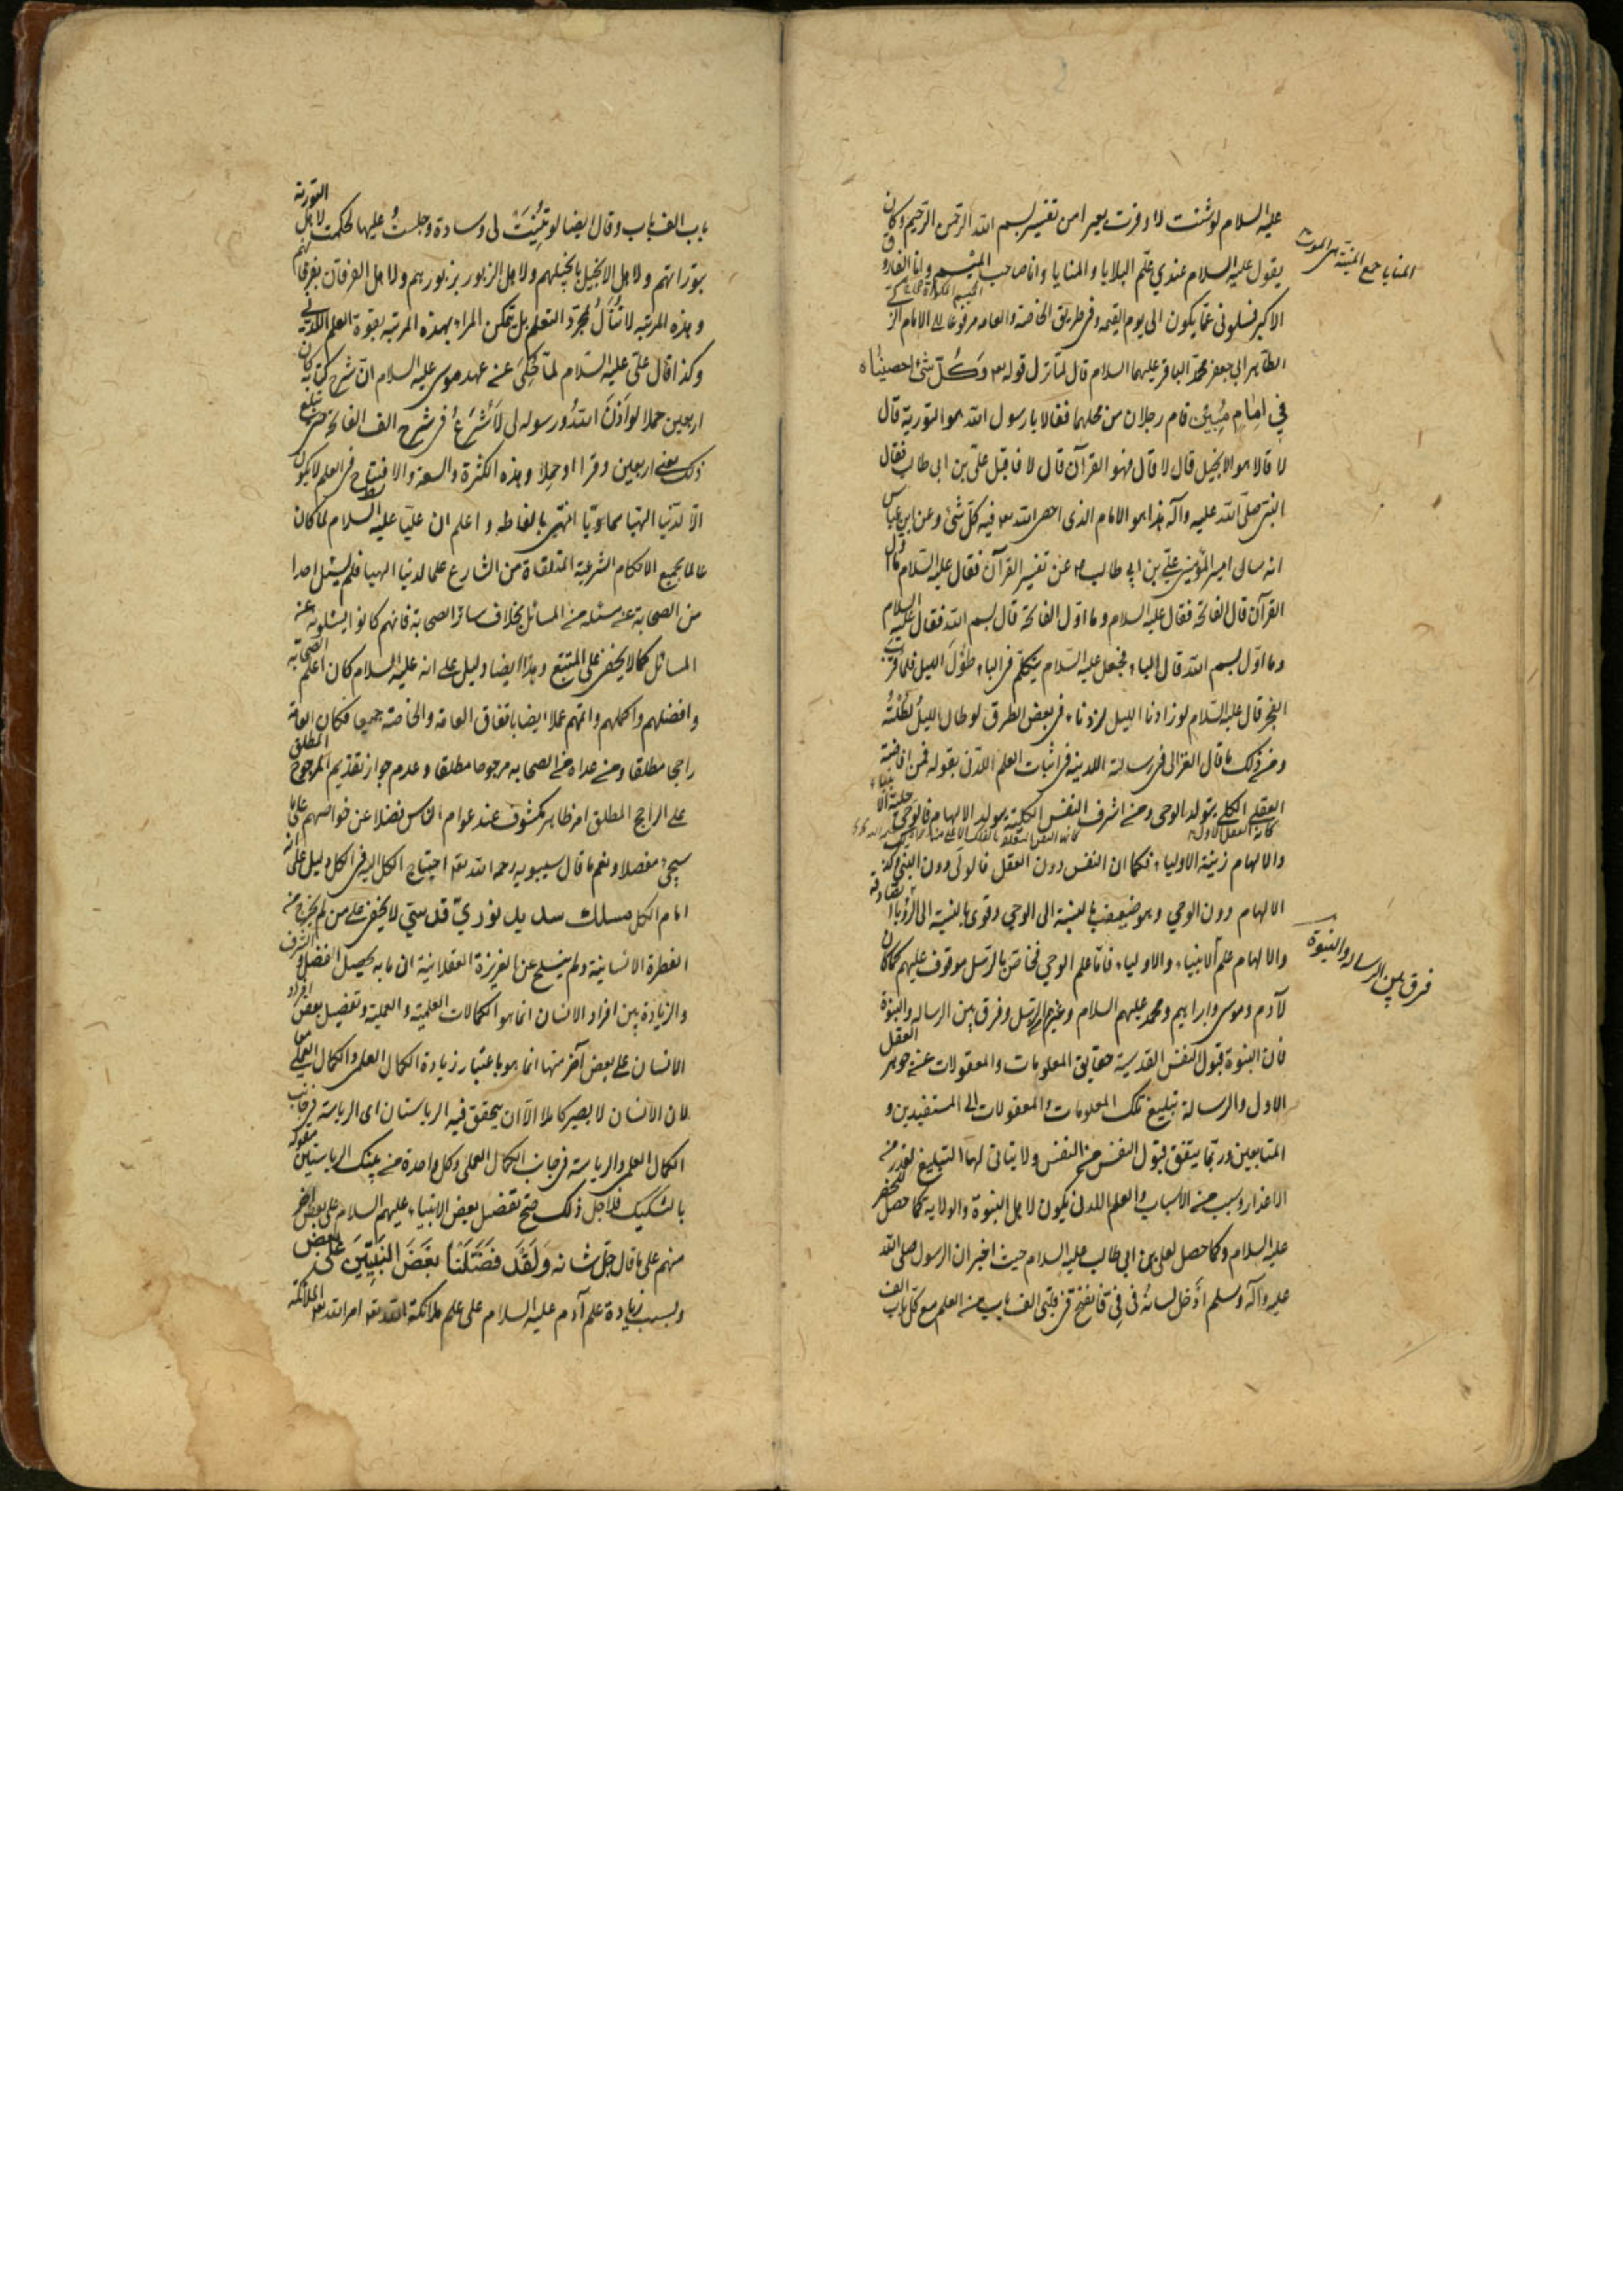 عليه السلام لو شئت لاوقرت بعيرا من تفسير بسم الله الرحمن الرحيم وكان
يقول عليه السلام عندي علم البلايا والمنايا وانا صاحب الميسم وانا الفاروق
الاكبر فسلوني عما يكون الى يوم القيمه وفي طريق الخاصة والعامه مرفوعا الى الامام
الطاهر ابي جعفر محمد الباقر عليهما السلام قال لما نزل قوله تع وَكُلّ شئ احصيناه
في امام مبين قام رجلان من محلهما فقالا يا رسول الله هو التورية قال
لا قالا هو الانجيل قال لا قال فهو القرآن قال لا فاقبل علي بن ابى طالب فقال
النبي صلى الله عليه وآله هذا هو الامام الذى احصى الله تع فيه كل شئ وعن ابن عباس
انه سال امير المؤمنين علي بن ابي طالب عن تفسير القرآن فقال عليه السلام ما اول
القرآن قال الفاتحة فقال عليه السلام وما اول الفاتحة قال بسم الله فقال عليه السلام
وما اول بسم الله قال الباء فجعل عليه السلام يتكلم فى الباء طول الليل فلما قرب
الفجر قال عليه السلام لو زادنا الليل لزدنا وفى بعض الطرق لو طال الليل لطلته
ومن ذلك ما قال الغزالى فى رسالته اللدنية فى اثبات العلم اللدنى بقوله فمن افاضة
العقل الكلى يتولد الوحى ومن اشرف النفس الكلية يتولد الالهام فالوحى حلية الانبياء
والالهام زينة الاولياء فكما ان النفس دون العقل فالولى دون النبي وكذا
الالهام دون الوحي وهو ضعيف بالنسبة الى الوحي وقوى بالنسبة الى الرؤيا
والالهام علم الانبياء والاولياء فاما علم الوحي فخاص بالرسل موقوف عليهم كما كان
لآدم وموسى وابراهيم ومحمد عليهم السلام وغيرهم من الرسل وفرق بين الرساله والنبوة
فان النبوة قبول النفس القدسية حقايق المعلومات والمعقولات عن جوهر العقل
الاول والرسالة تبليغ تلك المعلومات والمعقولات الى المستفيدين و
المتابعين وربما يتفق قبول النفس من النفس ولا يتاتى لها التبليغ لعذر من
الاعذار وسبب من الاسباب والعلم اللدنى يكون لاهل النبوة والولايه كما حصل للخضر
عليه السلام وكما حصل لعلي بن ابي طالب عليه السلام حيث اخبر ان الرسول صلى الله
عليه وآله وسلم ادخل لسانه فى فى فانفتح فى قلبى الف باب من العلم مع كل باب الف
المنايا جمع المنية هى الموت
فرق بين الرساله والنبوة
باب الف باب وقال ايضا لو ثنيت لى وسادة وجلست عليها لحكمت لاهل التورية
بتوراتهم ولاهل الانجيل بانجيلهم ولاهل الزبور بزبورهم ولاهل الفرقان بفرقانهم
وهذه المرتبه لا تنال بمجرد التعلم بل يتمكن المراء بهذه المرتبه بقوة العلم اللدني
وكذا قال علي عليه السلام لما حكى عن عهد موسى عليه السلام ان شرح كتابه كان
اربعين حملا لو اذن الله ورسوله لى لاشرع فى شرح الف الفاتحة حتى تبلغ
ذلك يعنى اربعين وقرا او حملا وهذه الكثرة والسعة والافتتاح فى العلم لا يكون
الا لدنيا الهيا سماويا انتهى بالفاظه واعلم ان عليا عليه السلام لما كان
عالما بجميع الاحكام الشرعية المتلقاة من الشارع علما لدنيا الهيا فلم يسئل احدا
من الصحابة عن مسئلة من المسائل بخلاف سائر الصحابة فانهم كانوا يسئلونه عن
المسائل كما لا يخفى على المتتبع وهذا ايضا دليل على انه عليه السلام كان اعلم الصحابة
وافضلهم واكملهم واتمهم عملا ايضا باتفاق العامة والخاصة جميعا فكان
راجحا مطلقا ومن عداه من الصحابه مرجوحا مطلقا وعدم جواز تقديم المرجوح المطلق
على الراجح المطلق امر ظاهر مكشوف عند عوام الناس فضلا عن خواصهم على ما
سيجئ مفصلا ونعم ما قال سيبويه رحمه الله تع احتياج الكل اليه فى الكل دليل على انه
امام الكل مسلك سديد نوري قدسي لا يخفى على من لم يخرج من
الفطرة الانسانية ولم ينسلخ عن الغريزة العقلانية ان ما به يحصل الفضل والشرف
والزيادة بين افراد الانسان انما هو الكمالات العلمية والعملية وتفضيل بعض افراد
الانسان على بعض آخر منها انما هو باعتبار زيادة الكمال العلمى والكمال العملى معا
لان الانسان لا يصير كاملا الا ان يتحقق فيه الرياستان اى الرياسة فى جانب
الكمال العلمى والرياسة فى جانب الكمال العملى وكل واحدة من تينك الرياستين مقولة
بالتشكيك فلاجل ذلك صح تفضيل بعض الانبياء عليهم السلام على بعض آخر
منهم على ما قال جل شانه وَلَقَدْ فَضَّلْنَا بَعْضَ النَّبِيِّينَ عَلَى بعض
وبسبب زيادة علم آدم عليه السلام على علم ملائكة الله تع امر الله تع الملائكة